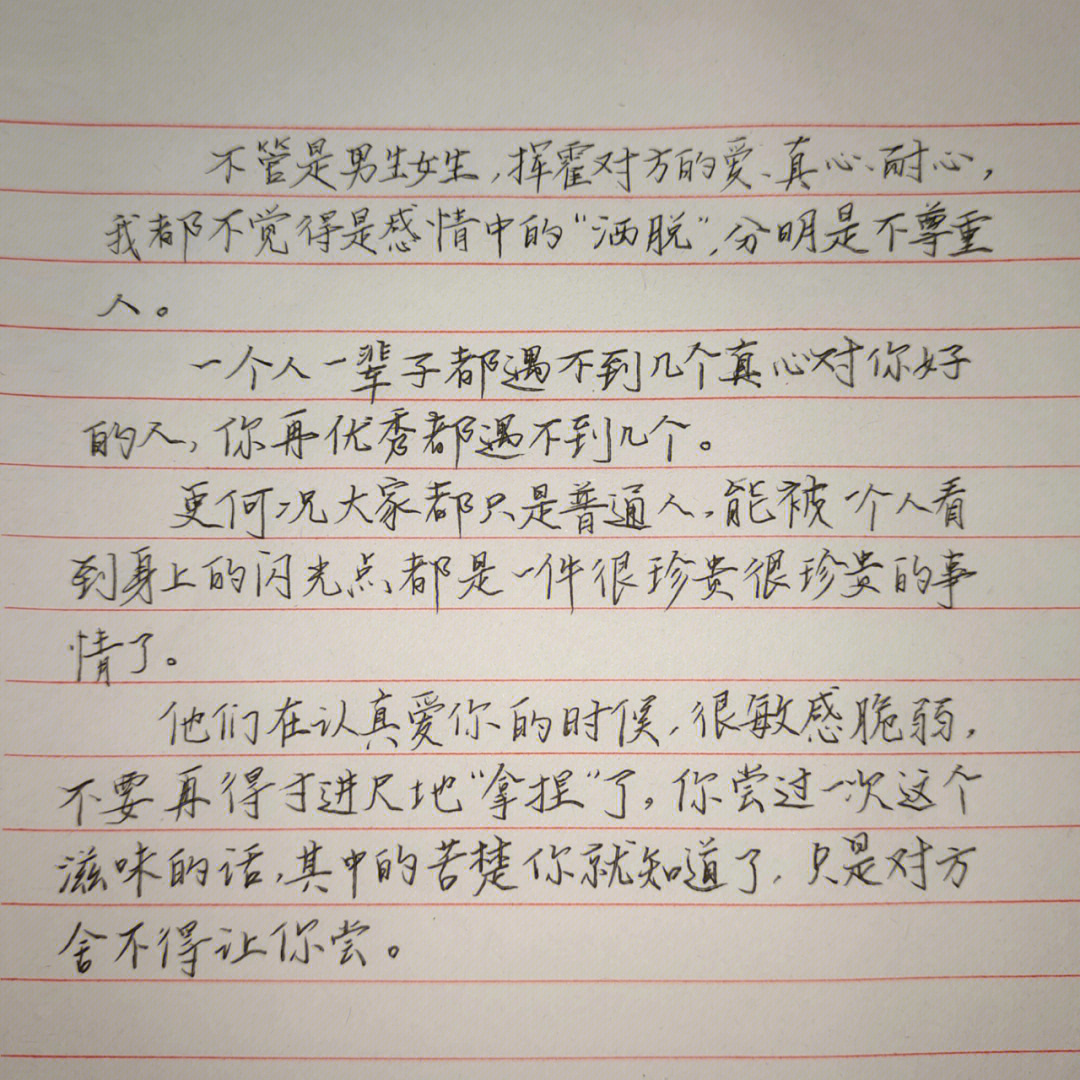 不管是男生女生,挥霍对方的爱、真心、耐心,
我都不觉得是感情中的“洒脱”,分明是不尊重
人。
一个人一辈子都遇不到几个真心对你好
的人,你再优秀都遇不到几个。
更何况大家都只是普通人,能被一个人看
到身上的闪光点都是一件很珍贵很珍贵的事
情了。
他们在认真爱你的时候,很敏感脆弱,
不要再得寸进尺地“拿捏”了,你尝过一次这个
滋味的话,其中的苦楚你就知道了,只是对方
舍不得让你尝。